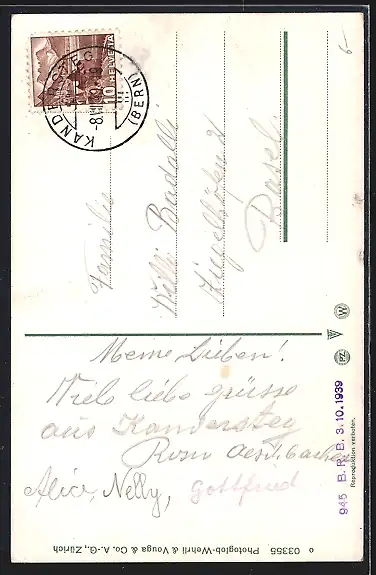 KANDERSTEG
(BERN)
-8.VIII.39
HELVETIA
10
5-
Familie
Willi
Basel
Meine Lieben!
Viele liebe grüsse
aus Kandersteg
Rosa Aeschbacher
Alice, Nelly, Gottfried
W
PZ
945 B. R. B. 3.10.1939
Reproduktion verboten.
o 03355 Photoglob-Wehrli & Vouga & Co. A.-G., Zürich